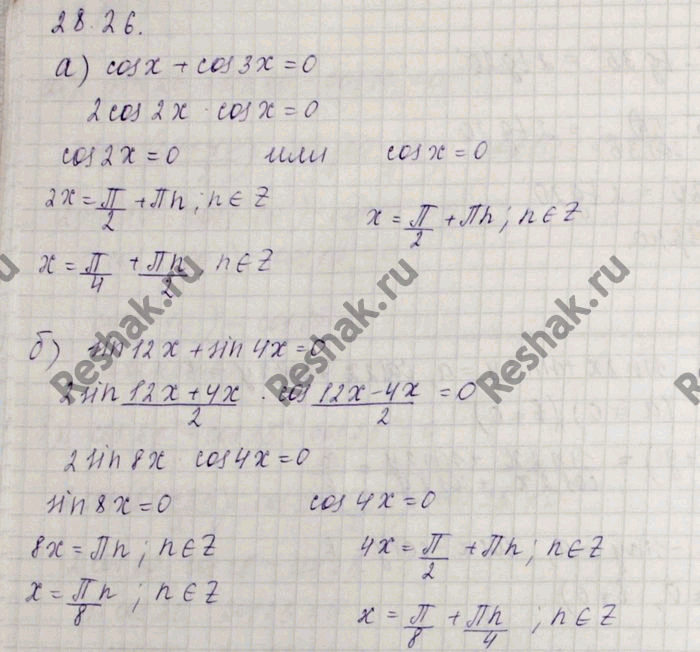 28.26.
а) cosx + cos3x = 0
2cos2x · cosx = 0
cos2x = 0 или cosx = 0
2x = П/2 + Пn; n∈Z
x = П/2 + Пn; n∈Z
x = П/4 + Пn/2 n∈Z
б) sin12x + sin4x = 0
2sin (12x+4x)/2 · cos (12x-4x)/2 = 0
2sin8x cos4x = 0
sin8x = 0 cos4x = 0
8x = Пn; n∈Z 4x = П/2 + Пn; n∈Z
x = П/8 n; n∈Z
x = П/8 + Пn/4; n∈Z
Reshak.ru
Reshak.ru
Reshak.ru